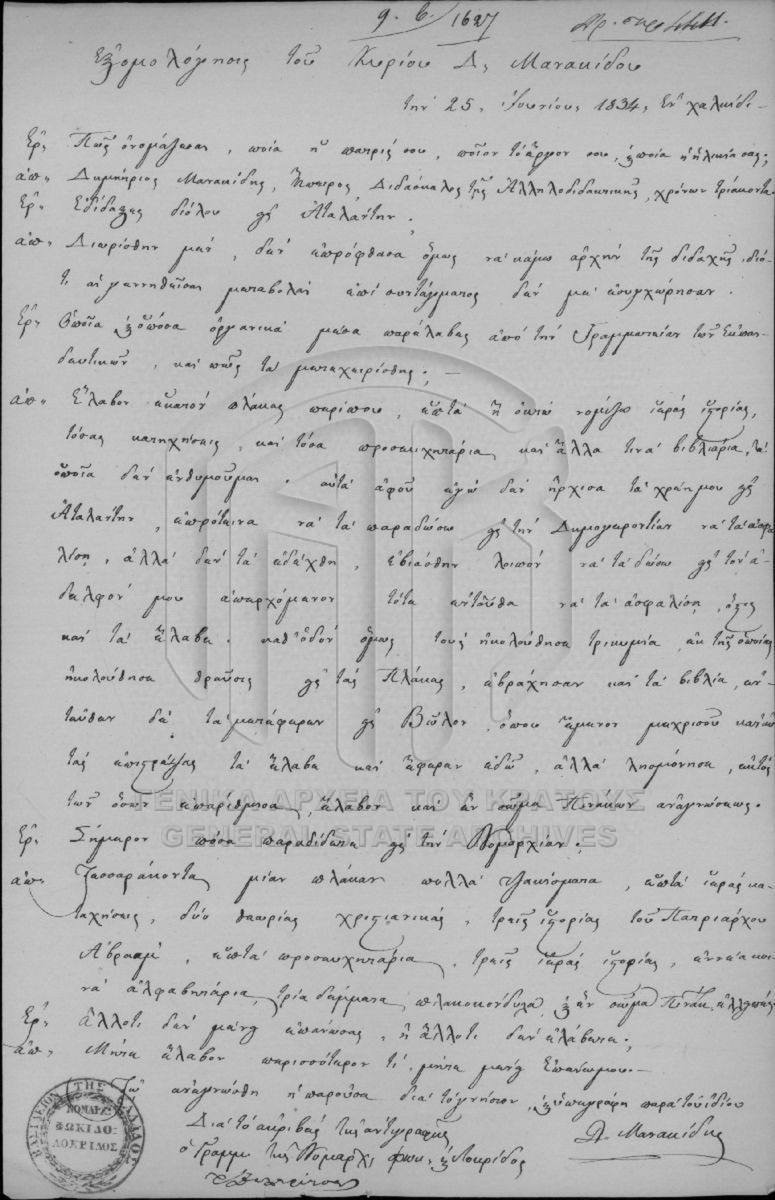 9. 6. / 1627
Ἐξομολόγησις τοῦ Κυρίου Δ. Μανακίδου
τὴν 25, Ἰουνίου, 1834, Ἐν χαλκίδι-
Ἐρ: Πῶς ὀνομάζεσαι, ποία ἡ πατρίς σου, ποῖον τὸ ἔργον σου, καὶ ποία ἡ ἡλικία σας;
ἀπ: Δημήτριος Μανακίδης, Ἤπειρος, Διδάσκαλος τῆς Ἀλληλοδιδακτικῆς, χρόνων τριάκοντα
Ἐρ: Ἐδίδαξες διόλου εἰς Ἀταλάντην;
ἀπ: Διωρίσθην μὲν, δὲν ἐπρόφθασα ὅμως νὰ κάμω ἀρχὴν τῆς διδαχῆς, διό-
τι αἱ γεννηθεῖσαι μεταβολαὶ ἐπὶ συντάγματος δὲν μὲ ἐσυγχώρησαν.
Ἐρ: Ὁποῖα καὶ πόσα ὀργανικὰ μέσα παρέλαβες ἀπὸ τὴν Γραμματείαν τῶν Ἐκπαι-
δευτικῶν, καὶ πῶς τὰ μετεχειρίσθης; —
ἀπ: Ἔλαβον ἑκατὸν πλάκας περίπου, ἑπτὰ ἢ ὀκτὼ νομίζω ἱερὰς ἱστορίας,
τόσας κατηχήσεις, καὶ τόσα προσευχητάρια, καὶ ἄλλα τινὰ βιβλιάρια, τὰ
ὁποῖα δὲν ἐνθυμοῦμαι. αὐτὰ ἀφοῦ ἐγὼ δὲν ἤρχισα τὸ χρέος μου εἰς
Ἀταλάντην, ἐπρότεινα νὰ τὰ παραδώσω εἰς τὴν Δημογεροντίαν νὰ τὰ ἀσφα
λίσῃ, ἀλλὰ δὲν τὰ ἐδέχθη, ἐβιάσθην λοιπὸν νὰ τὰ δώσω εἰς τὸν ἀ-
δελφόν μου ἀπερχόμενον τότε ἐνταῦθα νὰ τὰ ἀσφαλίσῃ, ὅστις
καὶ τὰ ἔλαβε. καθ' ὁδὸν ὅμως τοὺς ἠκολούθησε τρικυμία, ἐκ τῆς ὁποίας
ἠκολούθησε θραῦσις εἰς τὰς Πλάκας, ἐβράχησαν καὶ τὰ βιβλία, ἐν-
τεῦθεν δὲ τὰ μετέφεραν εἰς Βῶλον, ὅπου ἔμενον μέχρις οὗ κατὰ
τὰς ἐπιστροφὰς τὰ ἔλαβε καὶ ἔφεραν ἐδῶ, ἀλλὰ λησμόνησα, ἐκτὸς
τῶν ὅσων ἐπαρίθμησα, ἔλαβον καὶ ἓν σῶμα Πινάκων ἀναγνώσεως.
Ἐρ: Σήμερον πόσα παραδίδετε εἰς τὴν Νομαρχίαν;
ἀπ: Τεσσαράκοντα μίαν πλάκαν πολλὰ τσακίσματα, ἑπτὰ ἱερὰς κα-
τηχήσεις, δύο θεωρίας χριστιανικάς, τρεῖς ἱστορίας τοῦ Πατριάρχου
Ἀβραὰμ, ἑπτὰ προσευχητάρια, τρεῖς ἱερὰς ἱστορίας, ἐννέα κοι-
νὰ ἀλφαβητάρια, τρία δέμματα πλακοκόνδυλα, καὶ ἓν σῶμα Πινάκ.
Ἐρ: ἄλλο τι δὲν μένει ἐπάνω σας, ἢ ἄλλο τι δὲν ἐλάβετε;
ἀπ: Μήτε ἔλαβον περισσότερον τί, μήτε μένει ἐπάνω μου.—
ἀνεγνώσθη ἡ παροῦσα διὰ τὸ γνήσιον, καὶ ὑπεγράφη παρὰ τοῦ ἰδίου
Δ. Μανακίδης
Διὰ τὸ ἀκριβὲς τῆς ἀντιγραφῆς
ὁ Γραμμ. τῆς Νομαρχ. Φωκ. καὶ Λοκρίδος
ΒΑΣΙΛΕΙΟΝ ΤΗΣ ΕΛΛΑΔΟΣ
ΝΟΜΑΡΧ.
ΦΩΚΙΔΟΣ
ΛΟΚΡΙΔΟΣ
ΓΕΝΙΚΑ ΑΡΧΕΙΑ ΤΟΥ ΚΡΑΤΟΥΣ
GENERAL STATE ARCHIVES